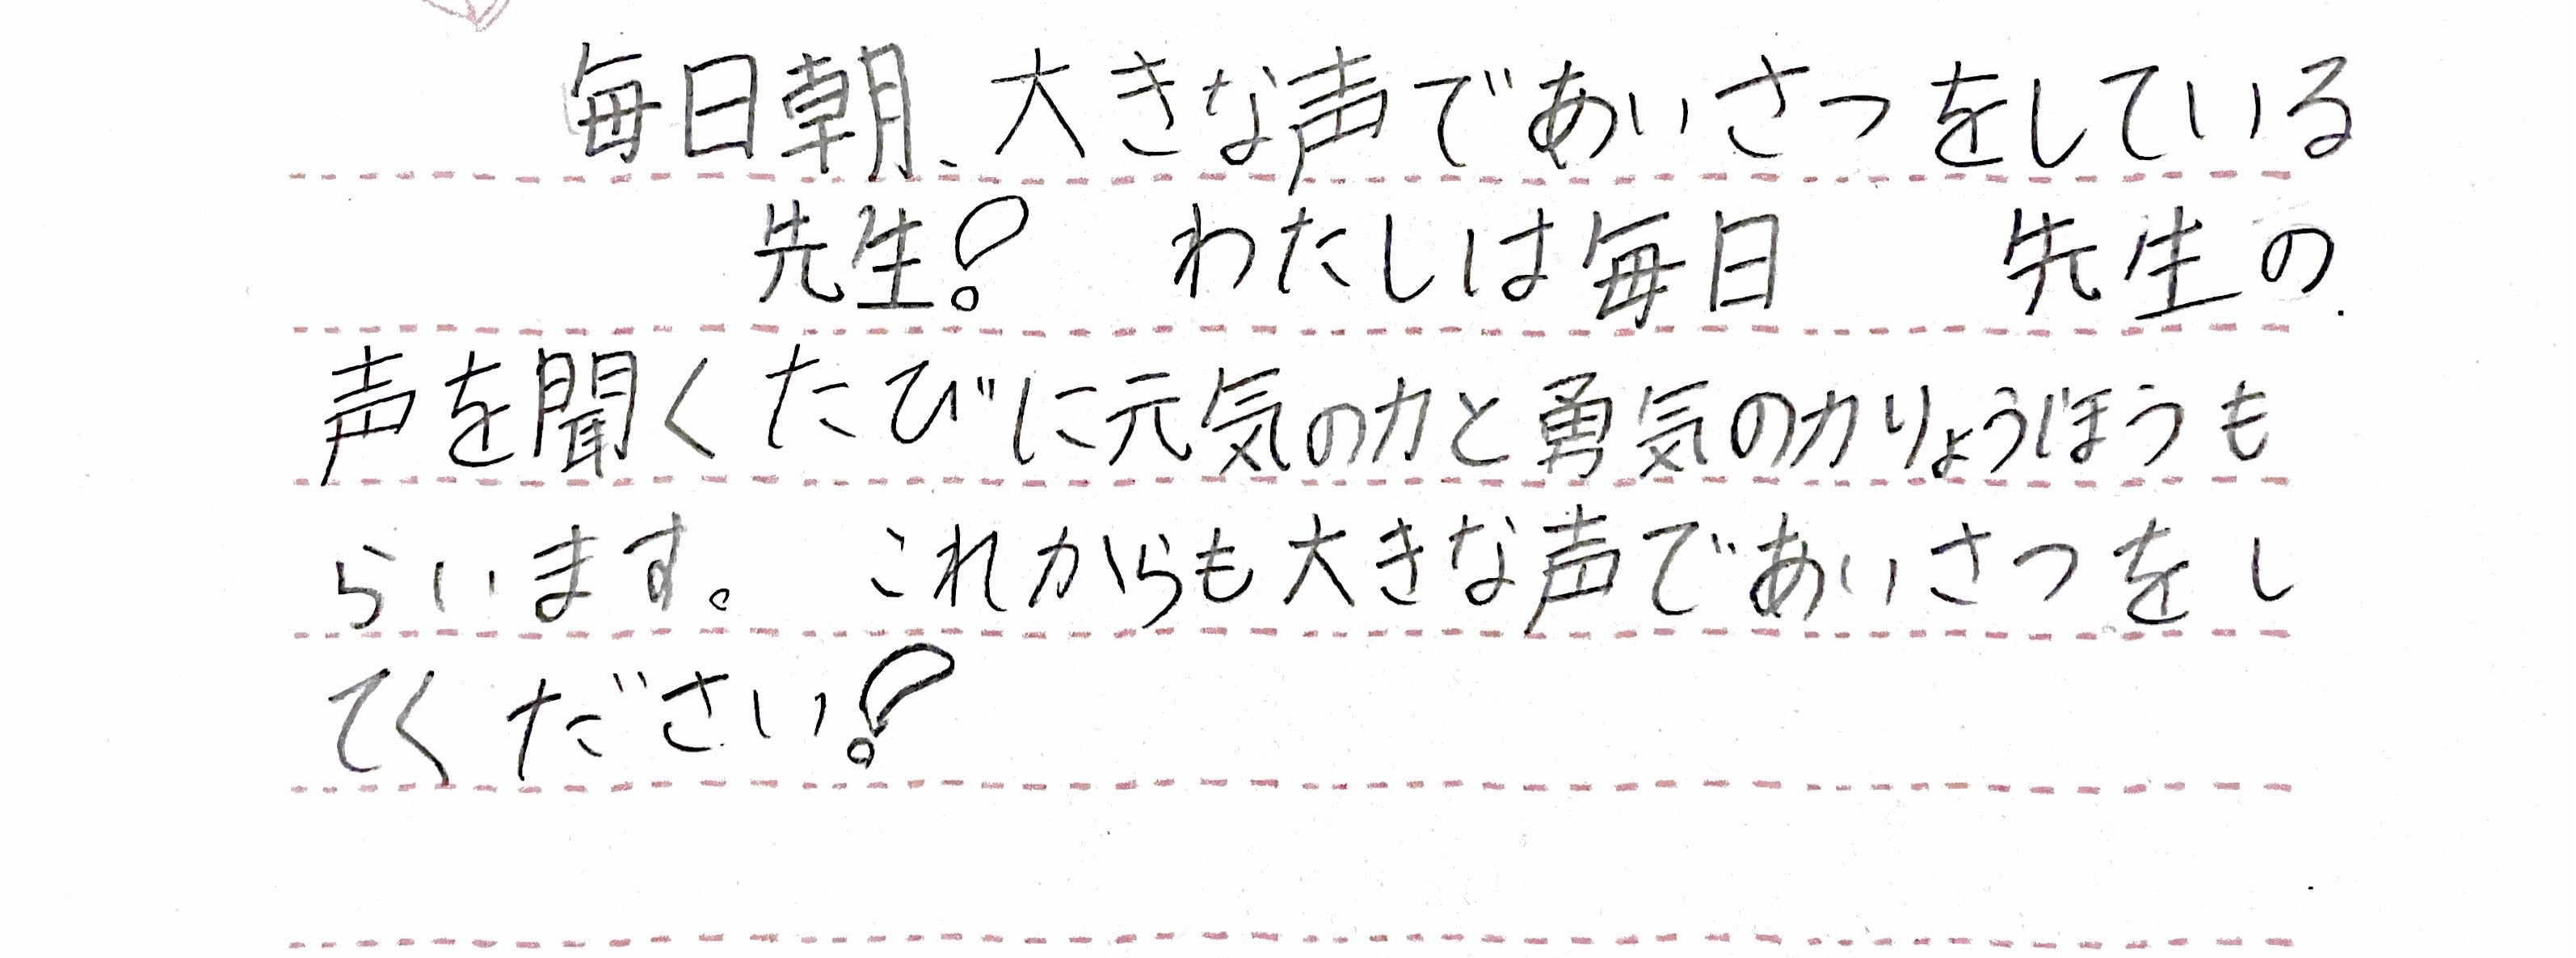 毎日朝、大きな声であいさつをしている
先生！ わたしは毎日 先生の
声を聞くたびに元気の力と勇気の力りょうほうも
らいます。 これからも大きな声であいさつをし
てください！